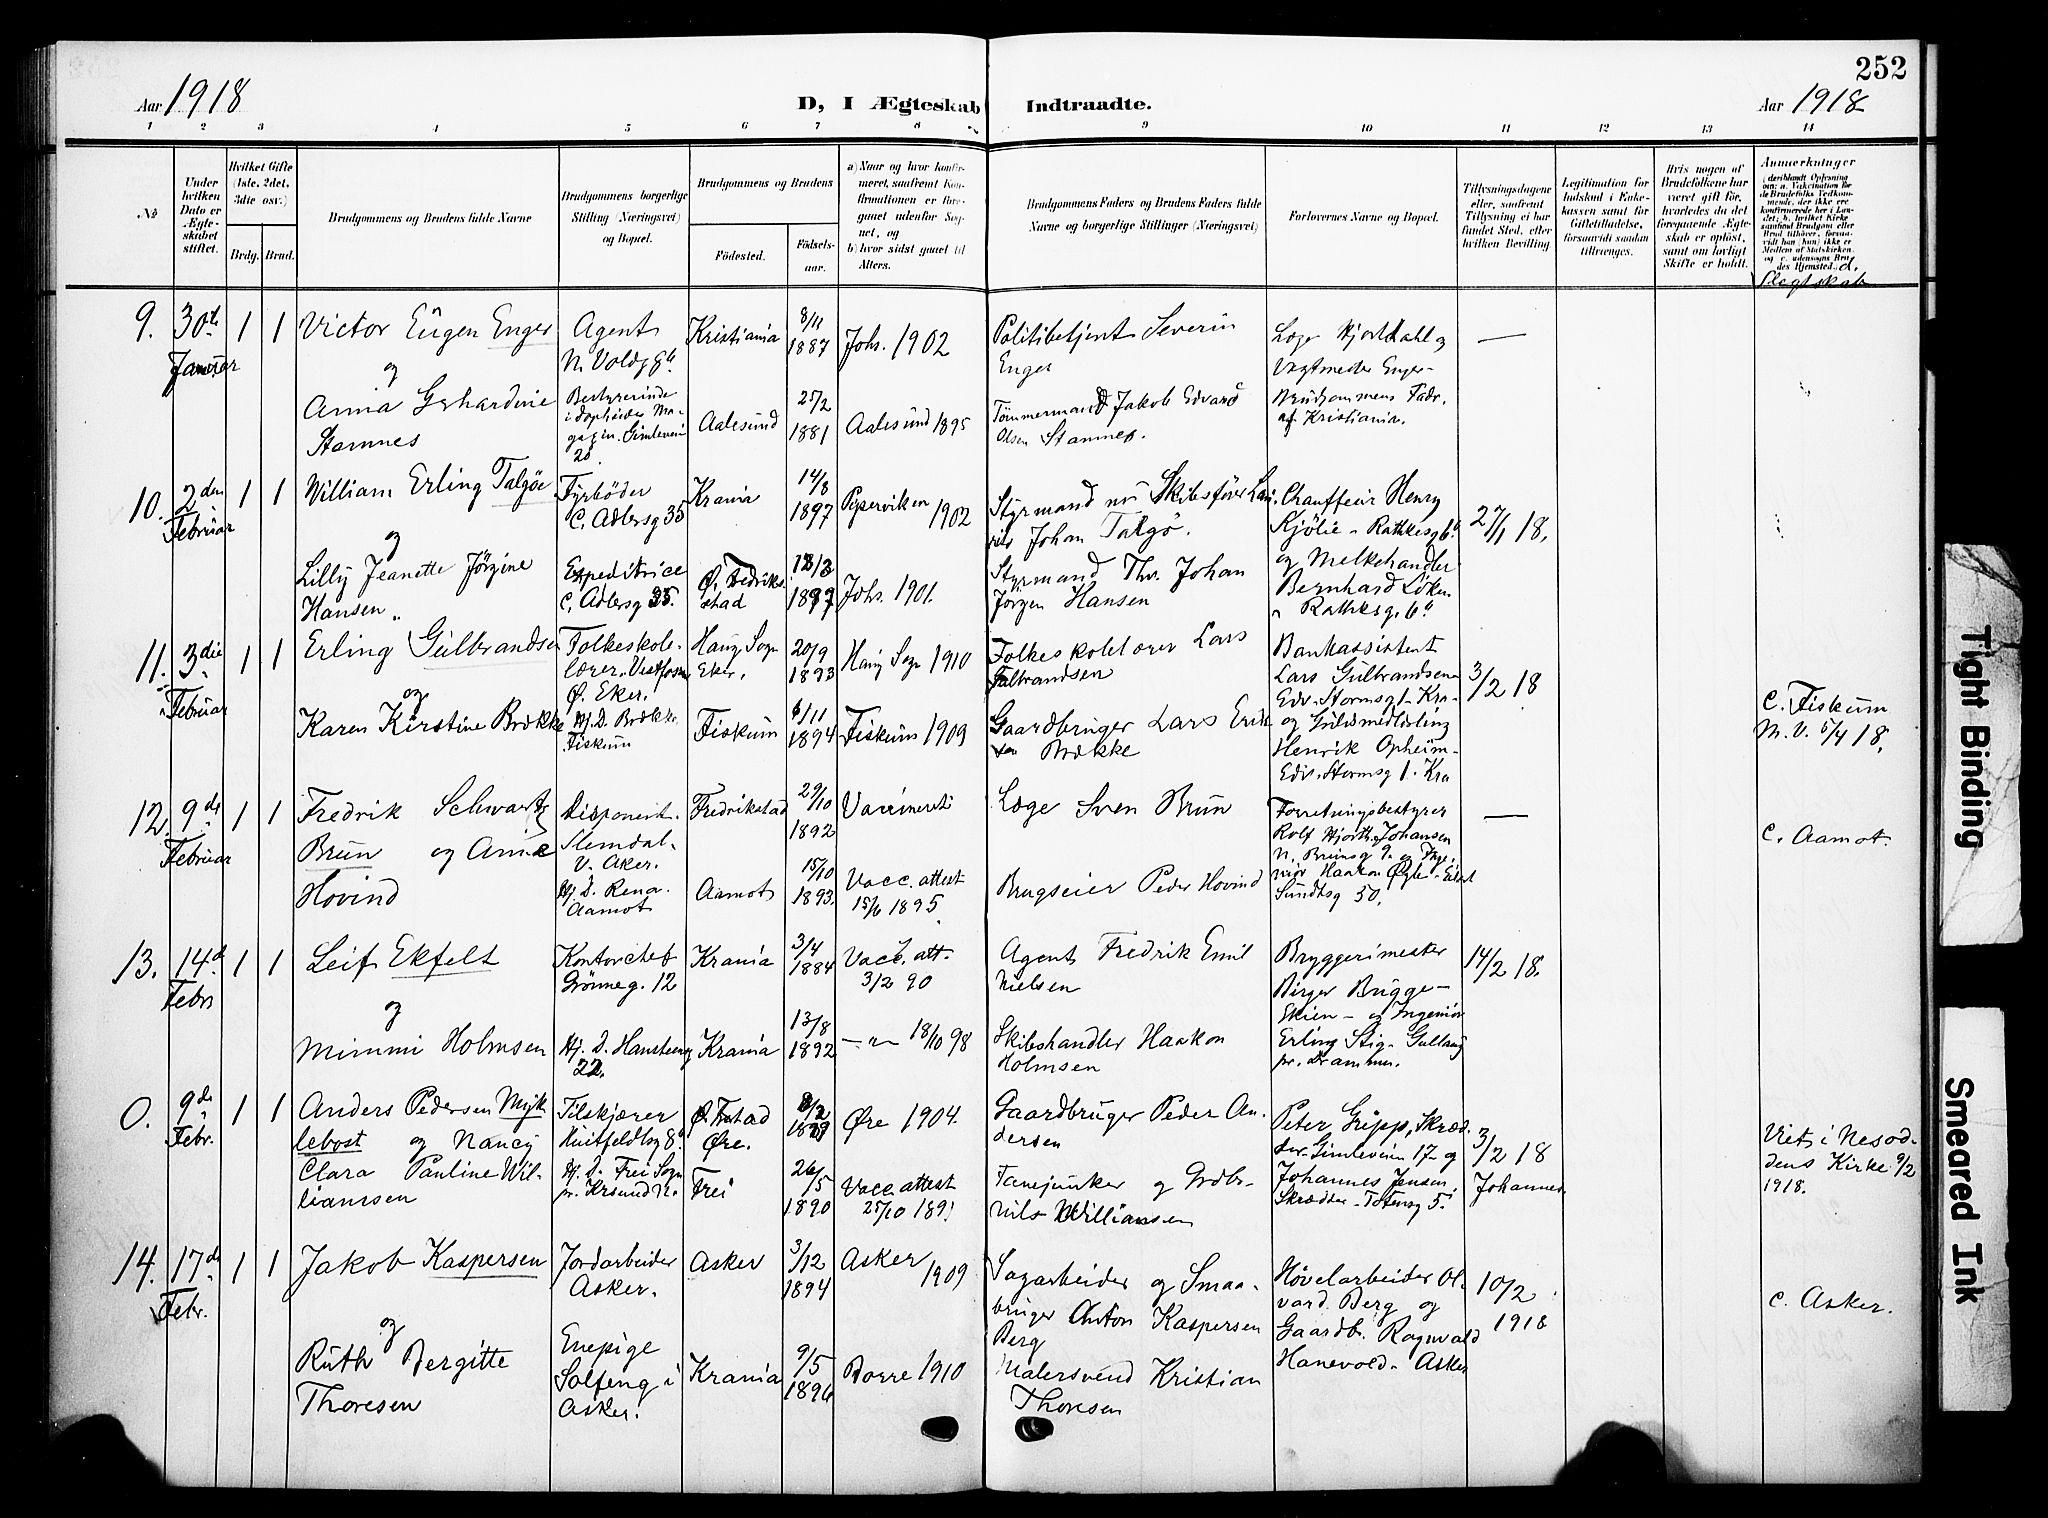 252
Aar 1918
D, I Ægteskab Indtraadte.
Aar 1918
1 2 3 4 5 6 7 8 9 10 11 12 13 14
№
Under hvilken Dato er Ægteskabet stiftet.
Hvilket Gifte (1ste, 2det, 3die osv.)
Brdg. Brud.
Brudgommens og Brudens fulde Navne
Brudgommens borgerlige Stilling (Næringsvei) og Bopæl.
Brudgommens og Brudens
Födested.
Födsels-aar.
a) Naar og hvor konfirmeret, saafremt Konfirmationen er foregaaet udenfor Sognet, og
b) hvor sidst gaaet til Alters.
Brudgommens Faders og Brudens Faders fulde Navne og borgerlige Stillinger (Næringsvei)
Forlovernes Navne og Bopæl.
Tillysningsdagene eller, saafremt Tillysning ei har fundet Sted, efter hvilken Bevilling.
Legitimation for Indskud i Enkekassen samt for Giftetilladelse, forsaavidt saadan tiltrænges.
Hvis nogen af Brudefolkene har været gift för, hvorledes da det foregaaende Ægteskab er oplöst, samt om lovligt Skifte er holdt.
Anmerkninger
Slegtskab
9. 30te Januar 1 1
Victor Eugen Enger
og
Anna Gerhardine
Stamnes
Agent
N. Voldg 8
Bestyrerinde
Gimleveien
20
Kristiania
Aalesund
8/11
1887
25/2
1881
Johs. 1902
Aalesund 1895
Politibetjent Severin
Enger
Tømmermand Jakob Edvard
Olsen Stamnes.
Læge Hjort Dahl og
Vagtmester Enger -
Brudgommens Fadr.
af Kristiania.
—
10. 2den Februar 1 1
William Erling Talgöe
og
Lilly Jeanette Jörgine
Hansen
Fyrböder
C. Adlersg 35
Expeditrice
C. Adlersg 35.
Krania
Ø. Fredrikstad
14/8
1897
Piperviken 1902
Johs. 1901.
Styrmand nu Skibsförer
Johan Talgö.
Styrmand Thv. Johan
Jörgen Hansen
Chauffeur Henry
Kjölie - Rathkesg 6
og Melkehandler
Bernhard Löken
Rathkesg. 6
27/1 18.
11. 3die Februar 1 1
Erling Gulbrandsen
og
Karen Kirstine Brække
Folkeskole-
lærer. Vestfossen
Ø. Eker.
Hj. D. Brække
Fiskum
Haug Sogn
Eker.
Fiskum
20/9
1893
6/11
1894
Haug Sogn 1910
Fiskum 1909
Folkeskolelærer Lars
Gulbrandsen
Gaardbruger Lars Erik
sen Brække
Bankassistent
Lars Gulbrandsen
Edv. Stormsg 1. Kra
og Guldsmedlærling
Henrik Opheim -
Edv. Stormsg 1. Kra
3/2 18
C. Fiskum
M. V. 5/4 18.
12. 9de Februar 1 1
Fredrik Schwartz
Brun og Anna
Hovind
Disponent.
Slemdal.
V. Aker.
Hj. D. Rena.
Aamot
Fredrikstad
Aamot
29/10
1892
15/10
1893.
Vaccineret
Vacc. attest
15/6 1895.
Læge Sven Brun
Brugseier Peder Hovind
Forretningsbestyrer
Rolf Hjorth Johansen
N. Brunsg 9. og Inge-
niör Haakon - Eilert
Sundtsg 50.
—
C. Aamot.
13. 14d Febr 1 1
Leif Ekfelt
og
Mimmi Holmsen
Kontorchef
Grönneg. 12
Hj. D. Hansteensg
22.
Krania
Krania
3/4
1884
13/8
1892
Vacc. att.
3/2 90
—"— 18/10 98
Agent Fredrik Emil
Nielsen
Skibshandler Haakon
Holmsen
Bryggerimester
Birger Brugge -
Skien - og Ingeniör
Erling Stig - Gullaug
pr. Drammen.
14/2 18.
O. 9de Febr. 1 1
Anders Pedersen Myk
lebost og Nancy
Clara Pauline Wil-
liamsen
Tilskjærer
Huitfeldtsg 8
Hj. D. Frei Sogn
pr. Krsund N.
Øre.
Frei
26/5
1890
Øre 1904.
Vacc. attest
25/10 1891
Gaardbruger Peder An-
dersen
Fanejunker og Grdbr.
Nils Williamsen
Peter Gripp, Skræd.
der. Gimleveien 17 - og
Johannes Jensen,
Skrædder - Totensg 5.
3/2 18
Johannes
Viet i Nesod-
dens Kirke 9/2
1918.
14. 17de Febr. 1 1
Jakob Kaspersen
og
Ruth Bergitte
Thoresen
Jordarbeider
Asker.
Enepige
Solfeng i
Asker.
Asker
Krania
3/12
1894
9/5
1896
Asker 1909
Borre 1910
Sagarbeider og Smaa-
bruger Anton Kaspersen
Berg
Malersvend Kristian
Thoresen
Hövelarbeider Ol-
vard. Berg og
Gaardb. Ragnvald
Hanevold - Asker
10/2
1918
C. Asker.
Tight Binding
Smeared Ink